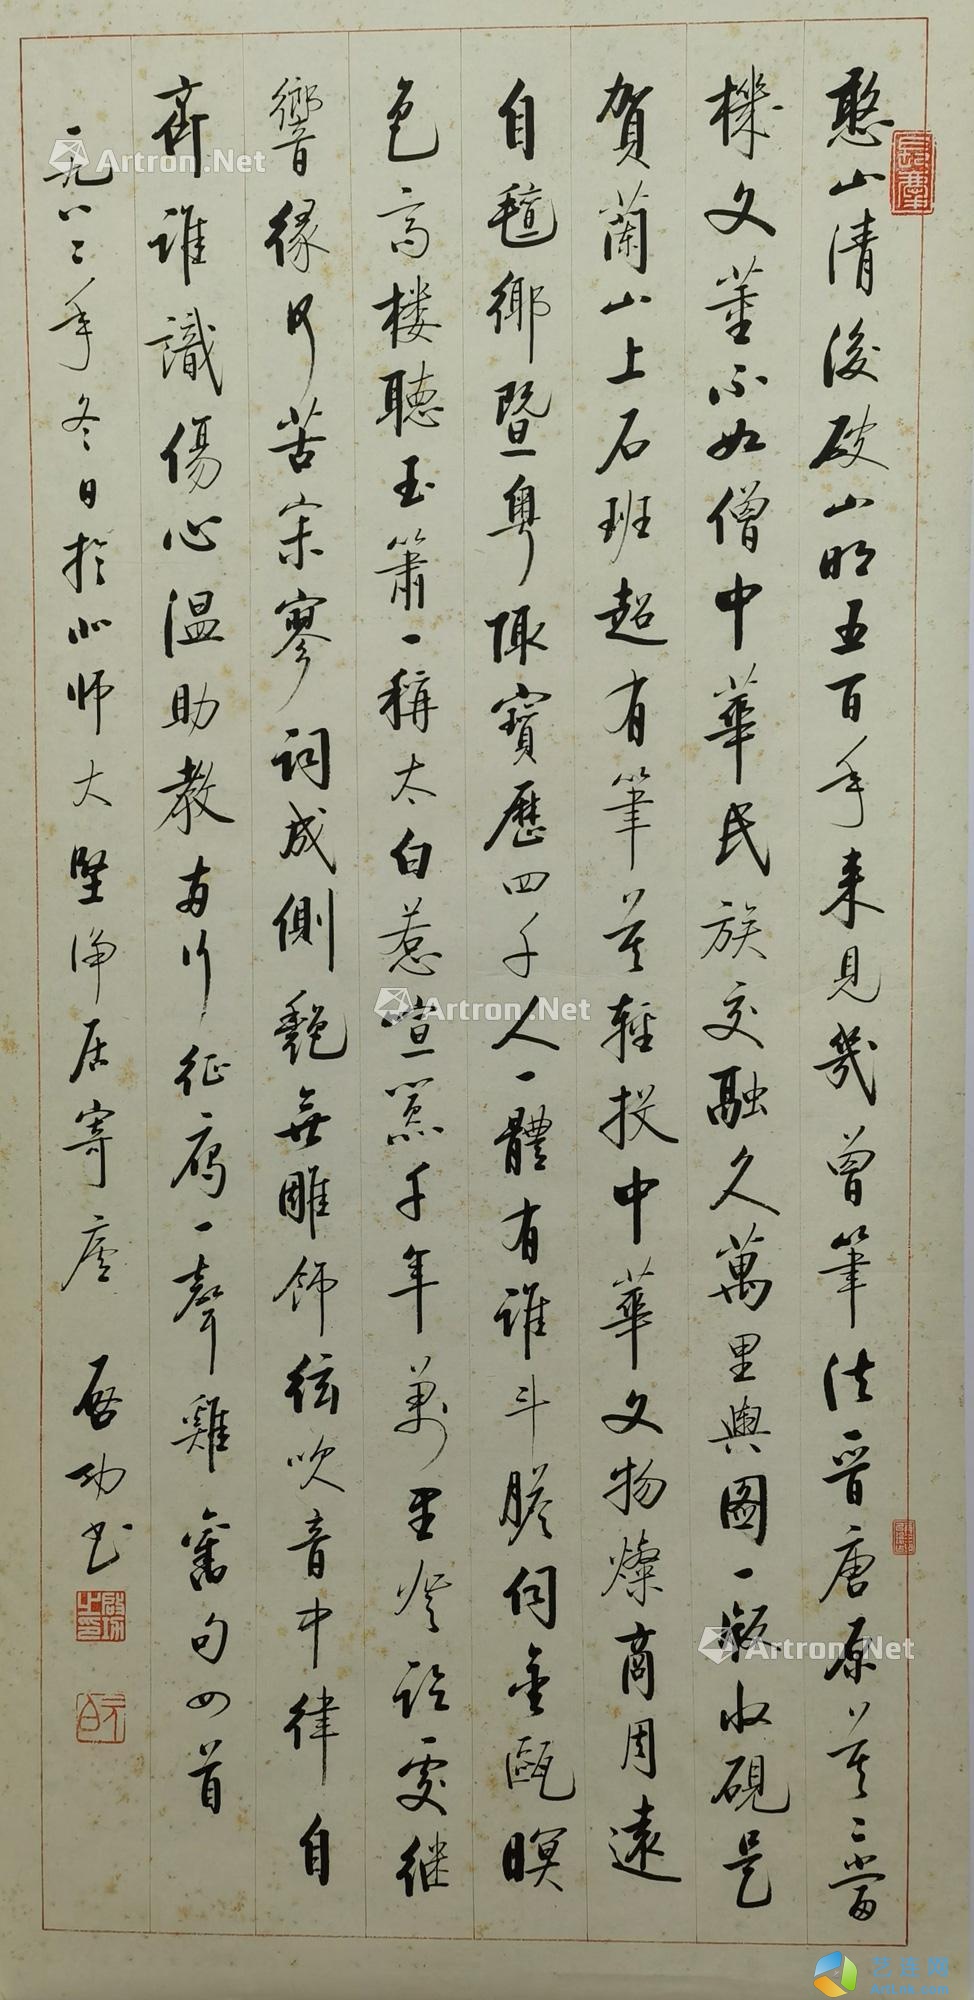 憨山清後破山明五百年来見幾曾筆法晋唐原莫二當
機文董不如僧中華民族交融久萬里輿圖一級收硯是
賀蘭山上石班超有筆莫輕投中華文物燦商周遠
自氈鄉暨粤陬寶歷四千人一體有誰斗膽伺金甌暝
色高樓聽玉簫一稱太白惹喧嚣千年萬里登臨處繼
響缘何苦寂寥詞成側艷無雕飾弦吹音中律自
齊誰識傷心温助教两行征雁一聲雞 舊句四首
一九八二年冬日於北师大堅净居寄廬 啟功书
Artron.Net
Artron.Net
Artron.Net
Artron.Net